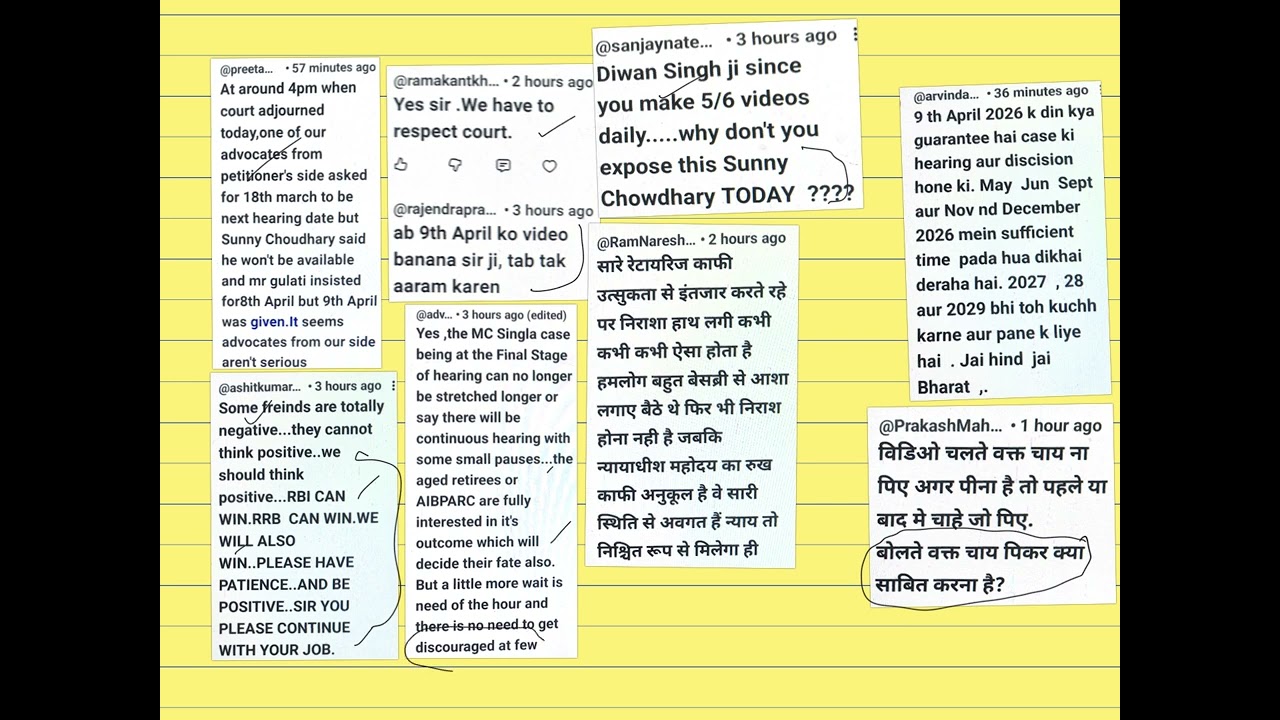 @preeta... • 57 minutes ago
At around 4pm when
court adjourned
today,one of our
advocates from
petitioner's side asked
for 18th march to be
next hearing date but
Sunny Choudhary said
he won't be available
and mr gulati insisted
for8th April but 9th April
was given.It seems
advocates from our side
aren't serious
@ashitkumar... • 3 hours ago
Some freinds are totally
negative...they cannot
think positive..we
should think
positive...RBI CAN
WIN.RRB CAN WIN.WE
WILL ALSO
WIN..PLEASE HAVE
PATIENCE..AND BE
POSITIVE..SIR YOU
PLEASE CONTINUE
WITH YOUR JOB.
@ramakantkh... • 2 hours ago
Yes sir .We have to
respect court.
@rajendrapra... • 3 hours ago
ab 9th April ko video
banana sir ji, tab tak
aaram karen
@adv... • 3 hours ago (edited)
Yes ,the MC Singla case
being at the Final Stage
of hearing can no longer
be stretched longer or
say there will be
continuous hearing with
some small pauses...the
aged retirees or
AIBPARC are fully
interested in it's
outcome which will
decide their fate also.
But a little more wait is
need of the hour and
there is no need to get
discouraged at few
@sanjaynate... • 3 hours ago
Diwan Singh ji since
you make 5/6 videos
daily.....why don't you
expose this Sunny
Chowdhary TODAY ????
@RamNaresh... • 2 hours ago
सारे रेटायरिज काफी
उत्सुकता से इंतजार करते रहे
पर निराशा हाथ लगी कभी
कभी कभी ऐसा होता है
हमलोग बहुत बेसब्री से आशा
लगाए बैठे थे फिर भी निराश
होना नही है जबकि
न्यायाधीश महोदय का रुख
काफी अनुकूल है वे सारी
स्थिति से अवगत हैं न्याय तो
निश्चित रूप से मिलेगा ही
@arvinda... • 36 minutes ago
9 th April 2026 k din kya
guarantee hai case ki
hearing aur discision
hone ki. May Jun Sept
aur Nov nd December
2026 mein sufficient
time pada hua dikhai
deraha hai. 2027 , 28
aur 2029 bhi toh kuchh
karne aur pane k liye
hai . Jai hind jai
Bharat ,.
@PrakashMah... • 1 hour ago
विडिओ चलते वक्त चाय ना
पिए अगर पीना है तो पहले या
बाद मे चाहे जो पिए.
बोलते वक्त चाय पिकर क्या
साबित करना है?